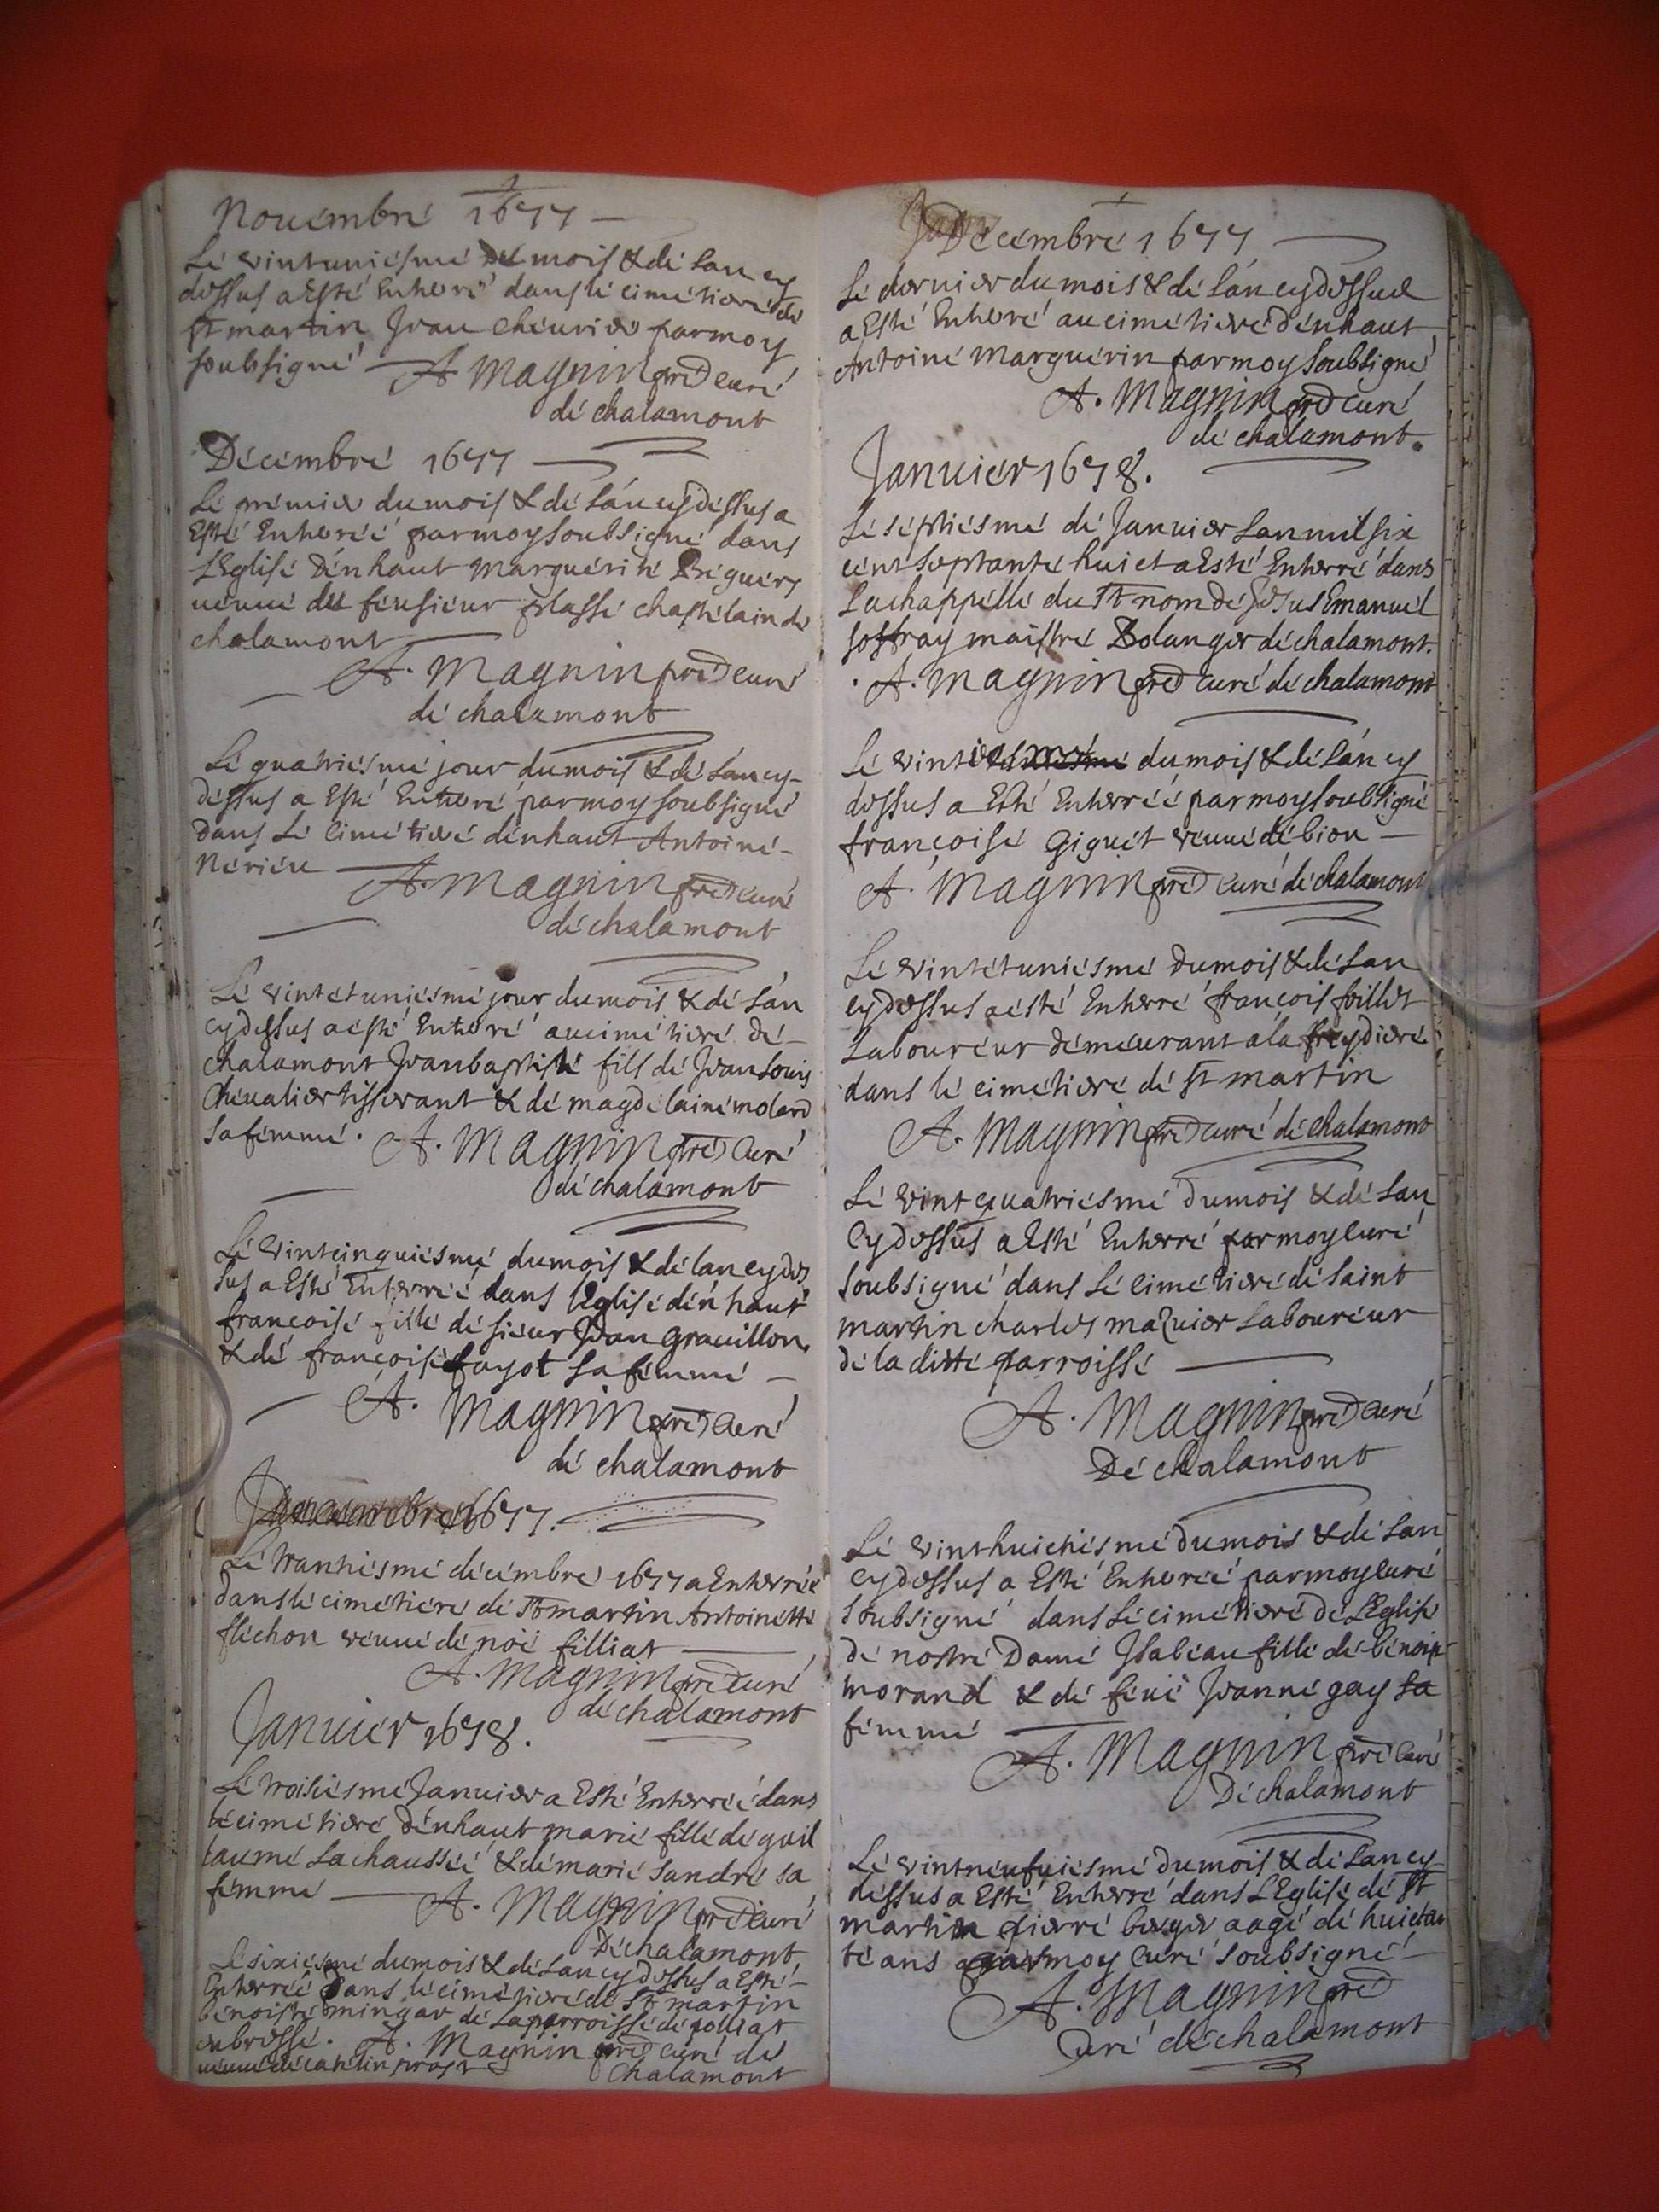 Nouembre 1677
Le vintuniesme du mois & de lan cy
dessus a esté enterré dans le cimetiere de
st martin Jean cheurier par moy
soubsigné A Magnin pre curé
de chalamont
Décembre 1677
Le premier du mois & de lán cy dessus a
esté enterrée par moy soubsigné dans
l'Eglise dénhaut Marguerite
ueuue du feu sieur plasse chastelain de
chalamont
A. Magnin pre curé
de chalamont
Le quatriesme jour du mois & de lán cy
dessus a esté enterré par moy soubsigné
dans le cimetiere dénhaut Antoine
Nerieu
A. Magnin pre curé
de chalamont
Le vintetuniesme jour du mois & de lán
cy dessus a esté enterré au cimetiere de
chalamont Jean baptiste fils de Jean Louis
Cheualier tisserant & de magdelaine molard
sa femme. A. Magnin pre Curé
de chalamont
Le vintcinquiesme du mois & de lan cy des
sus a esté enterrée dans l'Eglise dén haut
francoise fille de sieur Jean Grauillon
& de francoise fayot sa femme
A. Magnin pre Curé
de chalamont
1677.
Le trantiesme décembre 1677 a enterrée
dans le cimetiere de St martin Antoinette
fléchon veuue de noé filliat
A. Magnin pre Curé
de chalamont
Januier 1678.
Le troisiesme Januier a Esté Enterrée dans
le cimetiere dénhaut marie fille de guil
laume Lachaussée & de marie sandre sa
femme A. Magnin pre curé
De chalamont
Le sixiesme du mois & de lan cy dessus a esté
Enterrée dans le cimetiere de St martin
benoiste mingar de la parroisse de polliat
en bresse. A. Magnin pre curé de
ueuue de catelin prost Chalamont
Décembre 1677
Le dernier du mois & de lán cy dessus
a Esté Enterré au cimetiere dénhaut
Antoine Marguerin par moy soubsigné
A. Magnin pre curé
de chalamont.
Januier 1678.
Le septiesme de Januier Lan mil six
cent septante huict a Esté Enterré dans
La chappelle du St nom de Jesus Emanuel
Joffray maistre Bolanger de chalamont.
A. Magnin pre curé de chalamont
Le du mois & de lán cy
dessus a Esté Enterrée par moy soubsigné
francoise Giguet veuue de bion
A. Magnin pre Curé de chalamont
Le vintetuniesme du mois & de lan
cy dessus a esté Enterré francois foillet
Laboureur demeurant a la freydiere
dans le cimetiere de St martin
A. Magnin pre curé de chalamont
Le vintquatriesme du mois & de Lan
Cy dessus a Esté Enterré par moy curé
soubsigné dans le cimetiere de saint
martin charles mazuier Laboureur
de la ditte parroisse
A. Magnin pre Curé
De chalamont
Le vinthuictiesme du mois & de Lan
cy dessus a Esté Enterrée par moy curé
soubsigné dans le cimetiere de L'Eglise
de nostre Dame Isabeau fille de benoipt
morand & de feüe Jeanne gay sa
femme
A. Magnin pre Curé
De chalamont
Le vintneufuiesme du mois & de Lan cy
dessus a Esté Enterré dans L'Eglise de St
martin pierre berger aagé de huictan
te ans par moy Curé soubsigné
A. Magnin pre
Curé de chalamont